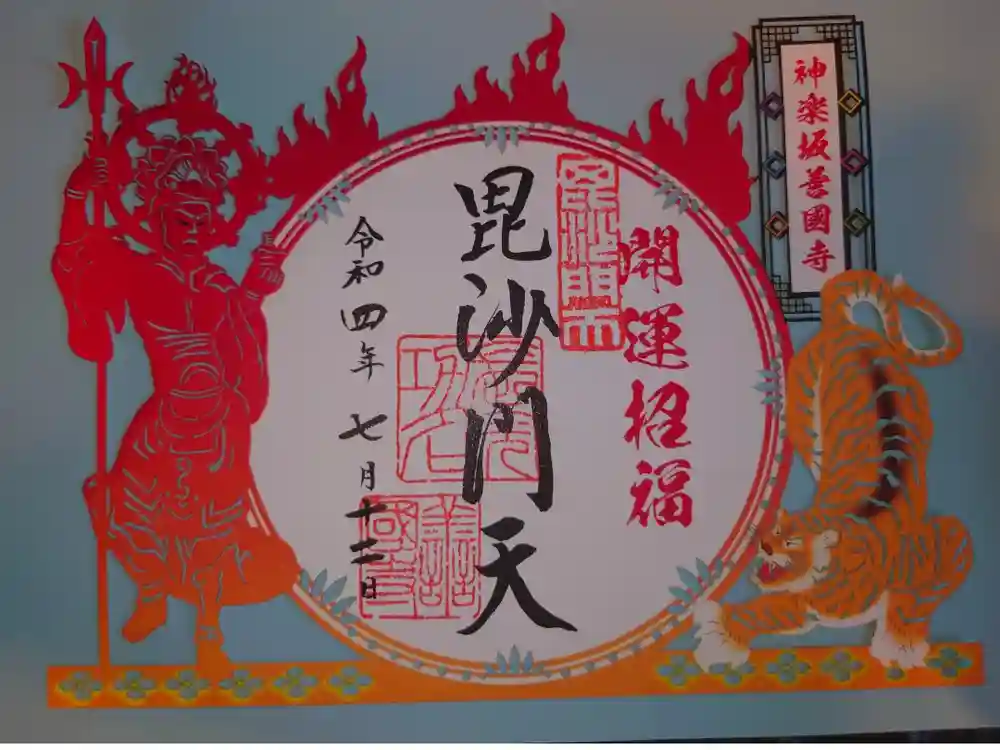 神楽坂善國寺
開運招福
毘沙門天
令和四年 七月十二日
善國寺